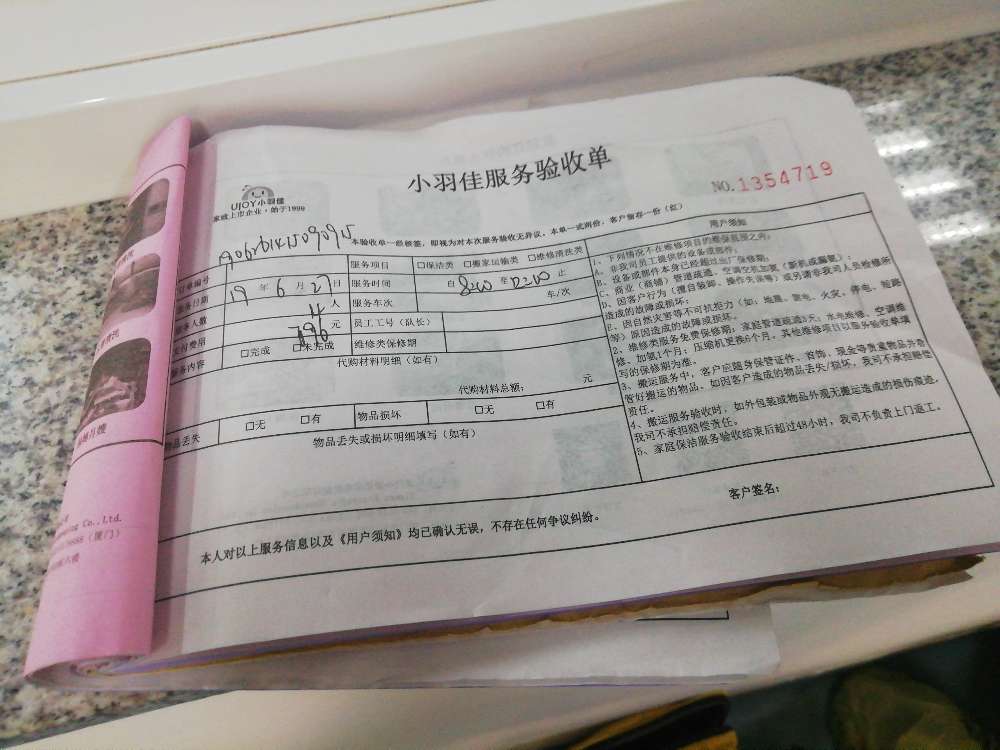 小羽佳服务验收单
NO.1354719
UJOY小羽佳
家政上市企业·始于1999
本验收单一经核签，即视为对本次服务验收无异议。本单一式两份，客户留存一份（红）
单编号
服务项目 □保洁类 □搬家运输类 □维修清洗类
务日期 19 年 6 月 27 日 服务时间 自 8200 至 止
务人数 4 人 服务车次 车/次
费用 796 元 员工工号（队长）
服务内容 □完成 □未完成 维修类保修期
代购材料明细（如有）
代购材料总额： 元
物品丢失 □无 □有 物品损坏 □无 □有
物品丢失或损坏明细填写（如有）
用户须知
1、下列情况不在维修项目的维保范围之内：
A、非我司员工提供的设备或部件；
B、设备或部件本身已经超过出厂保修期；
C、商业（商铺）管道疏通，空调空机加氨（新机或漏氨）；
D、因客户行为（擅自装卸、操作失误等）或另请非我司人员检修所
造成的故障或损坏；
E、因自然灾害等不可抗拒力（如：地震、雷电、火灾、停电、短路
等）原因造成的故障或损坏。
2、维修类服务免费保修期：家庭管道疏通3天；水电维修、空调维
修、加氨1个月；压缩机更换6个月，其他维修项目以服务验收单填
写的保修期为准。
3、搬运服务中，客户应随身保管证件、首饰、现金等贵重物品并看
管好搬运的物品，如因客户造成的物品丢失/损坏，我司不承担赔偿
责任。
4、搬运服务验收时，如外包装或物品外观无搬运造成的损伤痕迹，
我司不承担赔偿责任。
5、家庭保洁服务验收结束后超过48小时，我司不负责上门返工。
客户签名：
本人对以上服务信息以及《用户须知》均已确认无误，不存在任何争议纠纷。
Co.,Ltd.
（厦门）